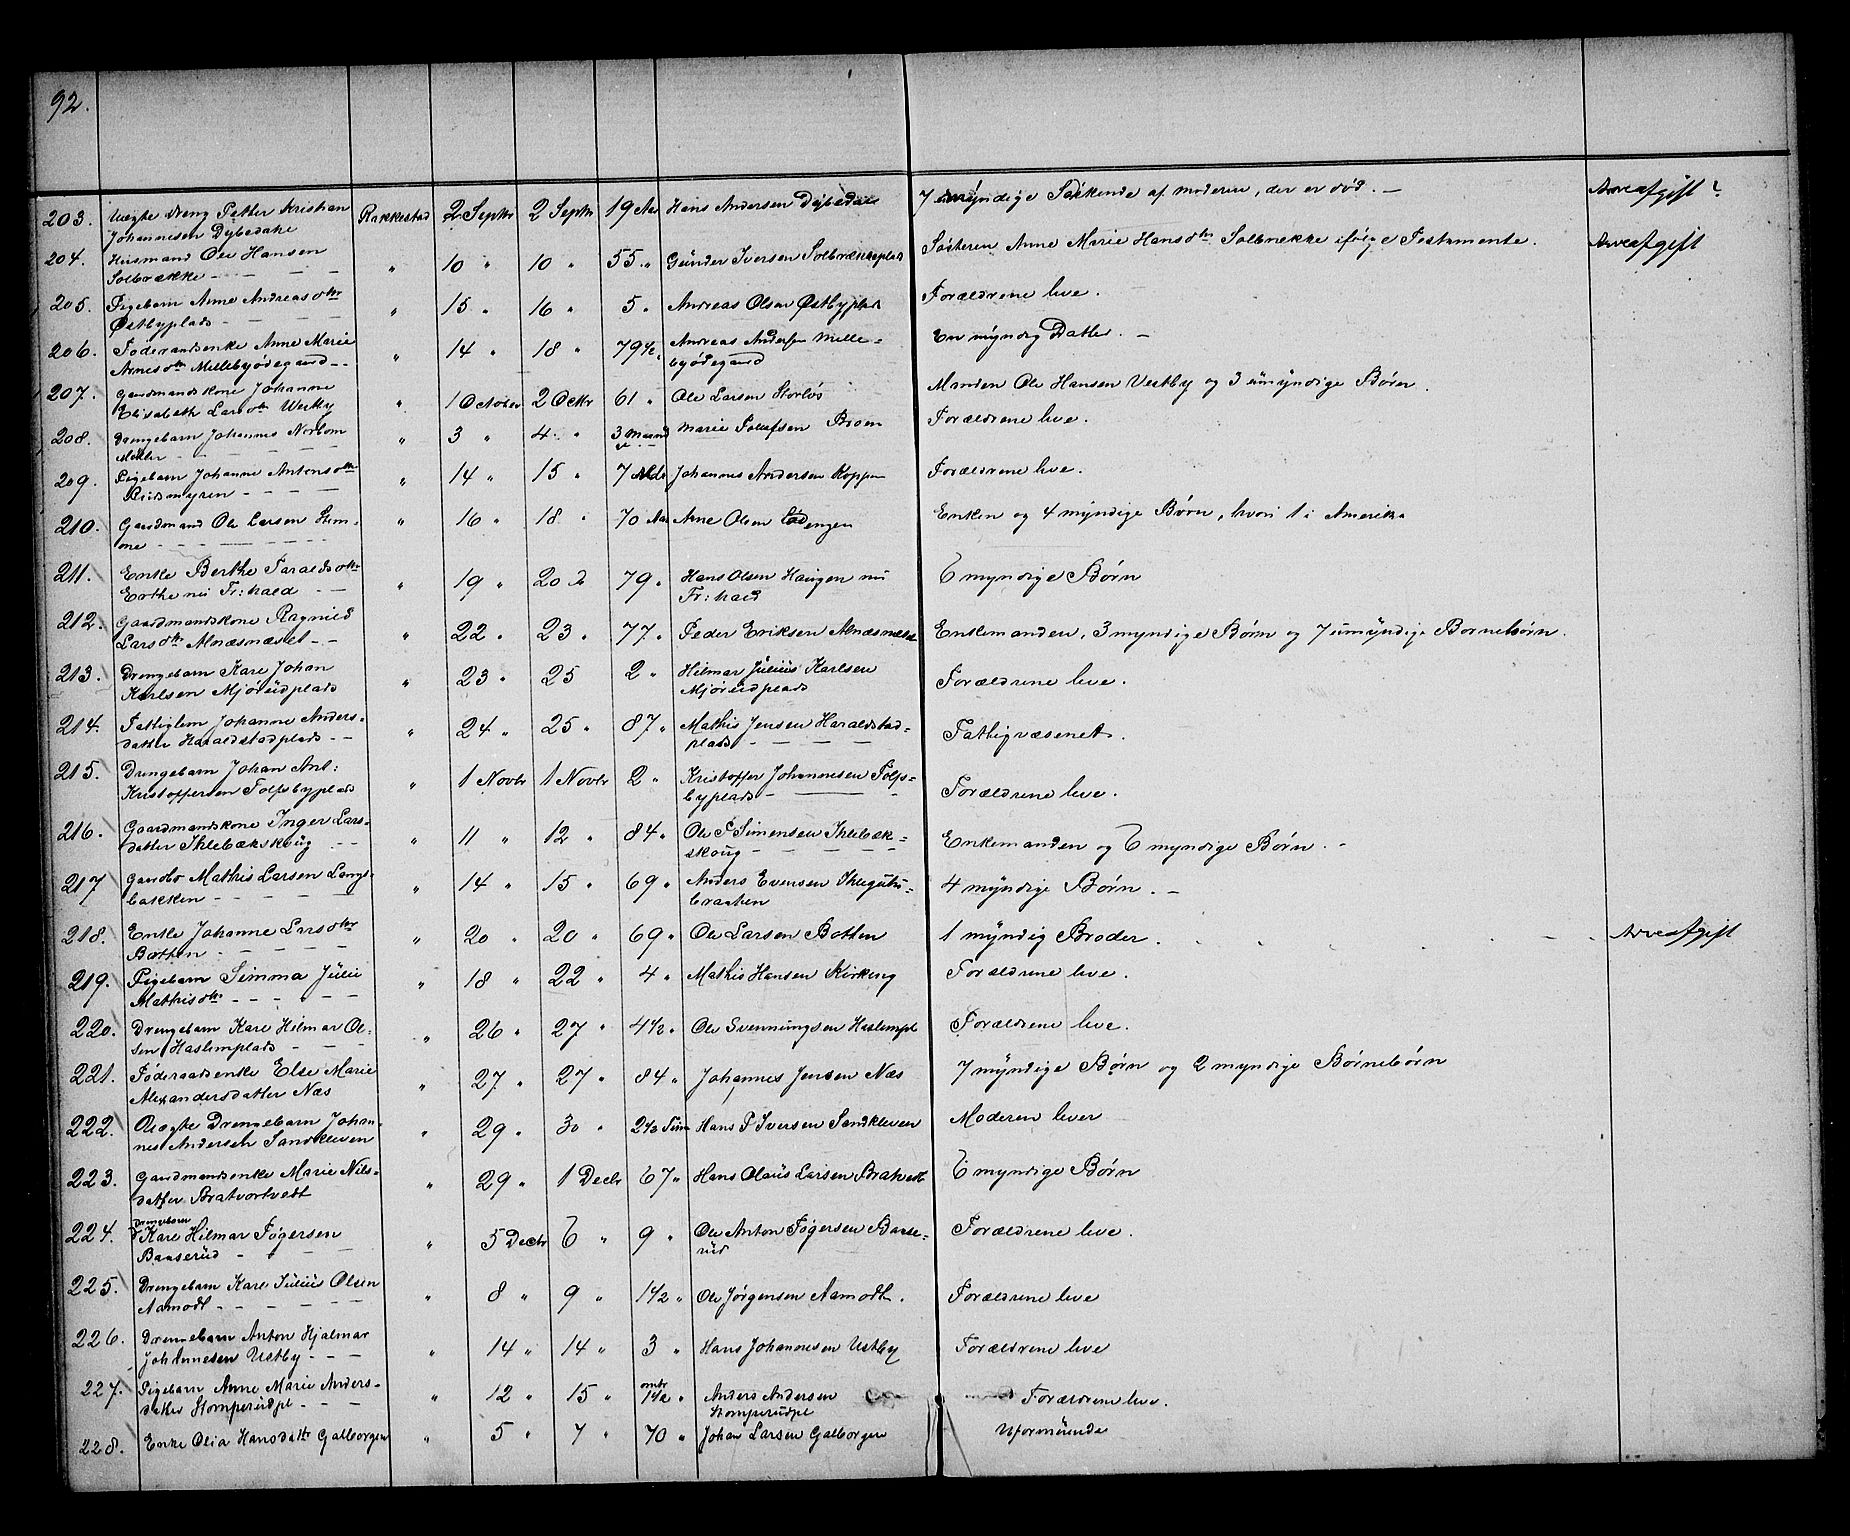 92.
203. Uægte Dreng Petter Kristian Rakkestad 2 Septbr 2 Septbr 19 Aar Hans Andersen Dybedahl 7 umyndige Søskende af moderen, der er død. — Arveafgift?
Johannesen Dybedahl
204. Husmand Ole Hansen " 10 " 10 " 55 " Gunder Iversen Solbrækkeplads Søsteren Anne Marie Hansdtr Solbrække ifølge Testamente. Arveafgift
Solbrække
205. Pigebarn Anne Andreasdtr " 15 " 16 " 5 " Andreas Olsen Østbyplads Forældrene leve.
Østbyplads
206. Føderaadsenke Anne Marie " 14 " 18 " 79 1/2 " Andreas Andersen Mille- En myndig Datter. —
Arnesdtr Millebyødegaard byødegaard
207. Gaardmandskone Johanne " 1 October 2 Octbr 61 " Ole Larsen Storløs Manden Ole Hansen Vestby og 3 umyndige Børn.
Elisabeth Larsdtr Vestby
208. Drengebarn Johannes Norbom " 3 " 4 " 3 Maaned Marie Braen Forældrene leve.
Møller
209. Pigebarn Johanne Antonsdtr " 14 " 15 " 7 Mdr Johannes Andersen Koppen Forældrene leve.
Rudsmyren
210. Gaardmand Ole Larsen Stem- " 16 " 18 " 70 Aar Arne Olsen Ladengen Enken og 4 myndige Børn, hvori 1 i Amerika
me
211. Enke Berthe Taraldsdtr " 19 " 20 " 79 " Hans Olsen Haugen nu 6 myndige Børn
Erthe nu Fr:hald Fr:hald
212. Gaardmandskone Ragnild " 22 " 23 " 77 " Peder Eriksen Alnæsnæstet Enkemanden, 3 myndige Børn og 7 umyndige Børnebørn.
Larsdtr Alnæsnæstet
213. Drengebarn Karl Johan " 23 " 25 2 " Hilmar Julius Karlsen Forældrene leve.
Karlsen Mjørudplads Mjørudplads
214. Fattiglem Johanne Anders- " 24 " 25 " 87 " Mathis Jensen Haraldstad- Fattigvæsenet.
datter Haraldstadplads plads
215. Drengebarn Johan Ant: " 1 Novbr 1 Novbr 2 " Kristoffer Johannesen Tolfs- Forældrene leve.
Kristoffersen Tolfsbyplads byplads
216. Gaardmandskone Inger Lars- " 11 " 12 " 84 " Ole P Simensen Ihlebæk- Enkemanden og 6 myndige Børn. —
datter Ihlebækskoug skoug
217 Gaardbr Mathis Larsen Langs- " 14 " 15 " 69 " Anders Evensen 4 myndige Børn. —
bakken braaten
218. Enke Johanne Larsdtr " 20 " 20 " 69 " Ole Larsen Botten 1 myndig Broder. Arveafgift
Botten
219. Pigebarn Simma Julie " 18 " 22 " 4 " Mathis Hansen Kirkeng Forældrene leve.
Mathisdtr
220. Drengebarn Karl Hilmar Ol- " 26 " 27 " 4 1/2 " Ole Svenningsen Haslempl Forældrene leve.
sen Haslemplads
221. Føderaadsenke Else Marie " 27 " 27 " 84 " Johannes Jensen Næs 7 myndige Børn og 2 myndige Børnebørn
Alexandersdatter Næs
222. Uægte Drengebarn Johan- " 29 " 30 " 2 1/2 Hans P Iversen Sandkleven Moderen lever
nes Andersen Sandkleven
223. Gaardmandsenke Marie Nils- " 29 " 1 Decbr 67 " Hans Olaus Larsen Bratvedt 6 myndige Børn
datter Bratvortvedt
224. Drengebarn Karl Hilmar Føgersen " 5 Decbr 6 " 9 " Ole Anton Føgersen Baase- Forældrene leve.
Baaserud rud
225. Drengebarn Karl Julius Olsen " 8 " 9 " 1 1/2 " Ole Jørgensen Aamodt. Forældrene leve
Aamodt
226. Drengebarn Anton Hjalmar " 14 " 14 " 3 " Hans Johannesen Ustby Forældrene leve
Johannesen Ustby
227. Pigebarn Anne Marie Anders- " 12 " 15 " omtr 1 1/2 " Anders Andersen Forældrene leve.
datter Stomperudpl Stomperudpl
228. Enke Olia Hansdatter Galborgen " 5 " 7 " 70 " Johan Larsen Galborgen Uformuende